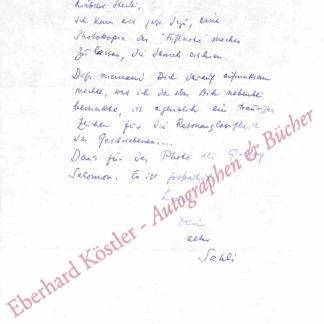 Ich kam erst jetzt dazu, eine
Photokopie der machen
zu lassen, die damals erschien.
Dass niemand Dich darauf aufmerksam
machte, was ich da über Dich nebenbei
bemerkte, ist eigentlich ein trauriges
Zeichen für die Resonanzlosigkeit
des Geschriebenen....
Dank für das Photo mit
Salomon. Es ist
Dein
alter
Sahl
Eberhard Köstler - Autographen & Bücher